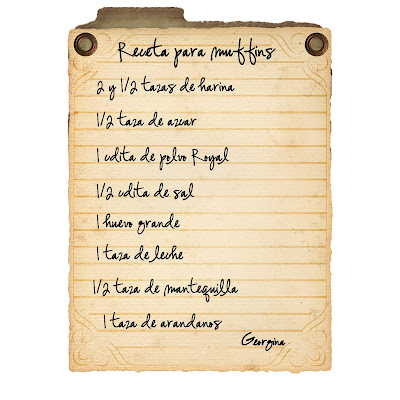 Receta para muffins
2 y 1/2 tazas de harina
1/2 taza de azucar
1 cdita de polvo Royal
1/2 cdita de sal
1 huevo grande
1 taza de leche
1/2 taza de mantequilla
1 taza de arandanos
Georgina